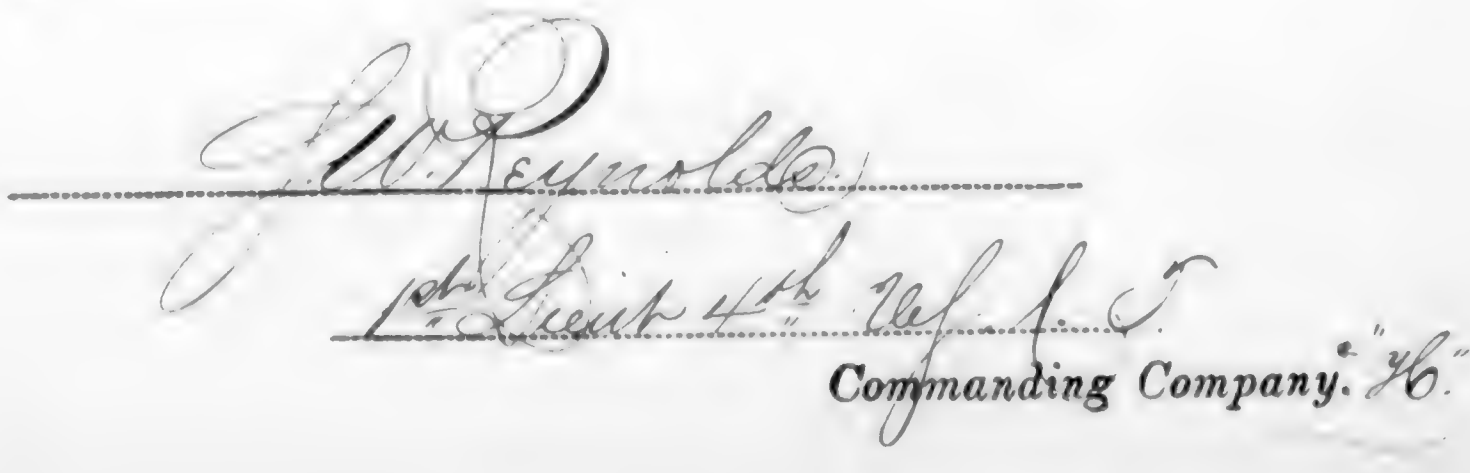 J. W. Reynolds
1st Lieut 4th
Commanding Company. "H."